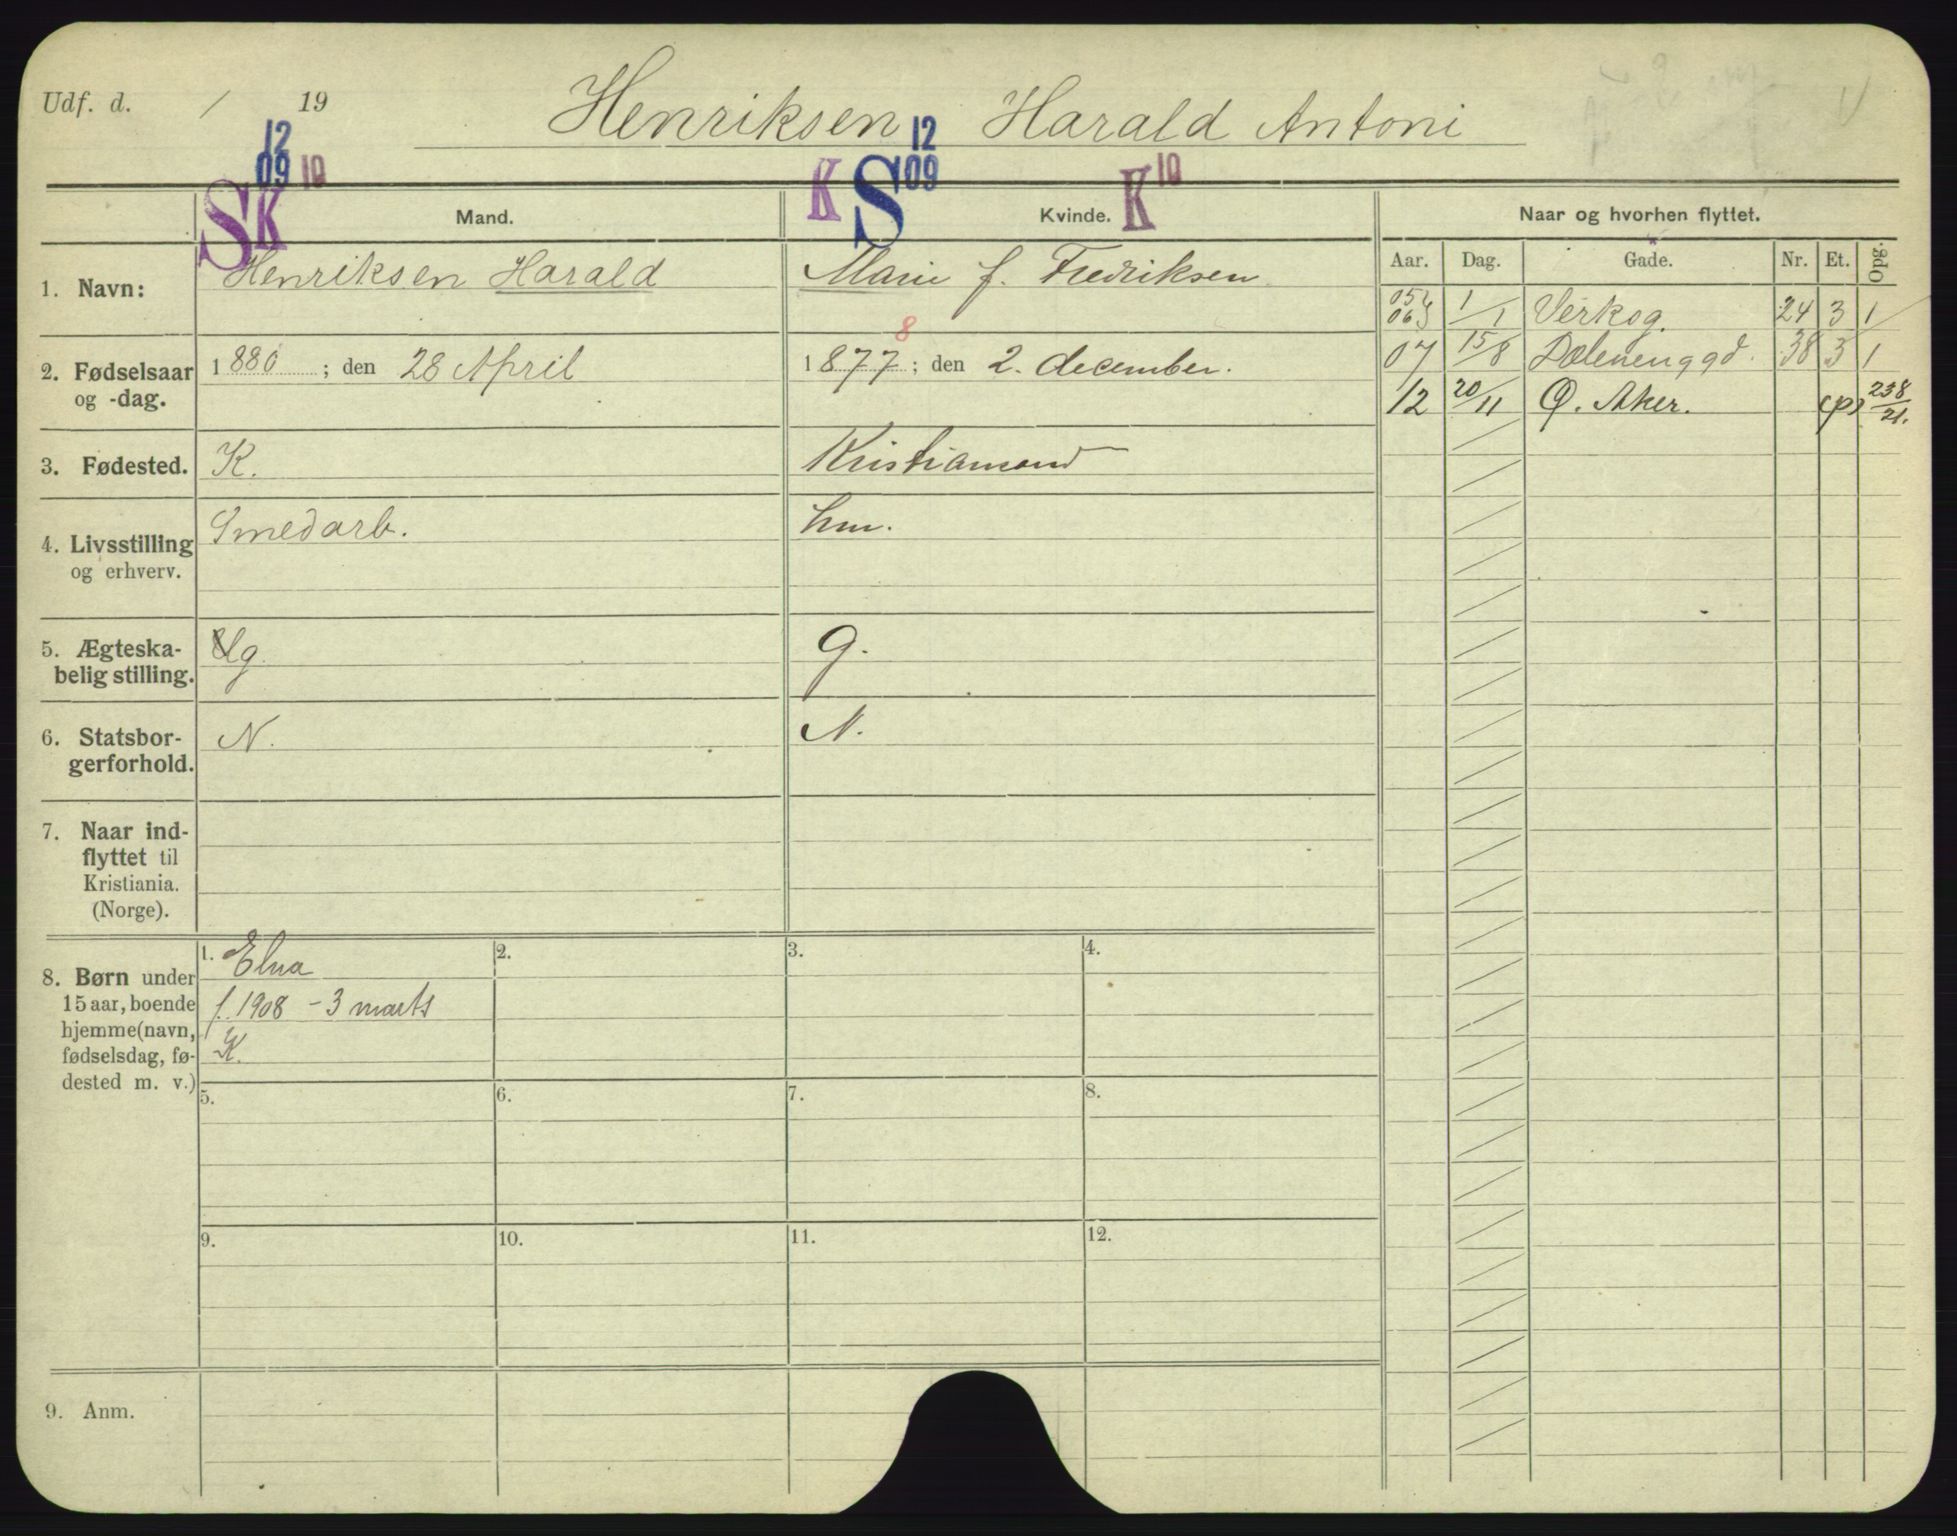 Udf. d. / 19
Henriksen Harald Antoni
12 09 10
S K
K S 12 09
K 10
Mand.
Kvinde.
Naar og hvorhen flyttet.
Aar. Dag. Gade. Nr. Et. Opg.
1. Navn:
Henriksen Harald
Marie f. Fredriksen
2. Fødselsaar og -dag.
1880 ; den 28 April
1877 ; den 2. december.
8
3. Fødested.
K.
Kristiansund
4. Livsstilling
og erhverv.
Smedarb.
hm.
5. Ægteska-
belig stilling.
g
g.
6. Statsbor-
gerforhold.
N.
N.
7. Naar ind-
flyttet til
Kristiania.
(Norge).
8. Børn under
15 aar, boende
hjemme (navn,
fødselsdag, fø-
dested m. v.)
1. Elna
f. 1908 - 3 marts
K.
2.
3.
4.
5.
6.
7.
8.
9.
10.
11.
12.
9. Anm.
05
06 1/1 Verksg. 24 3 1
07 15/8 Dælenenggd. 38 3 1
12 20/11 Ø. Aker. (p) 238/21.